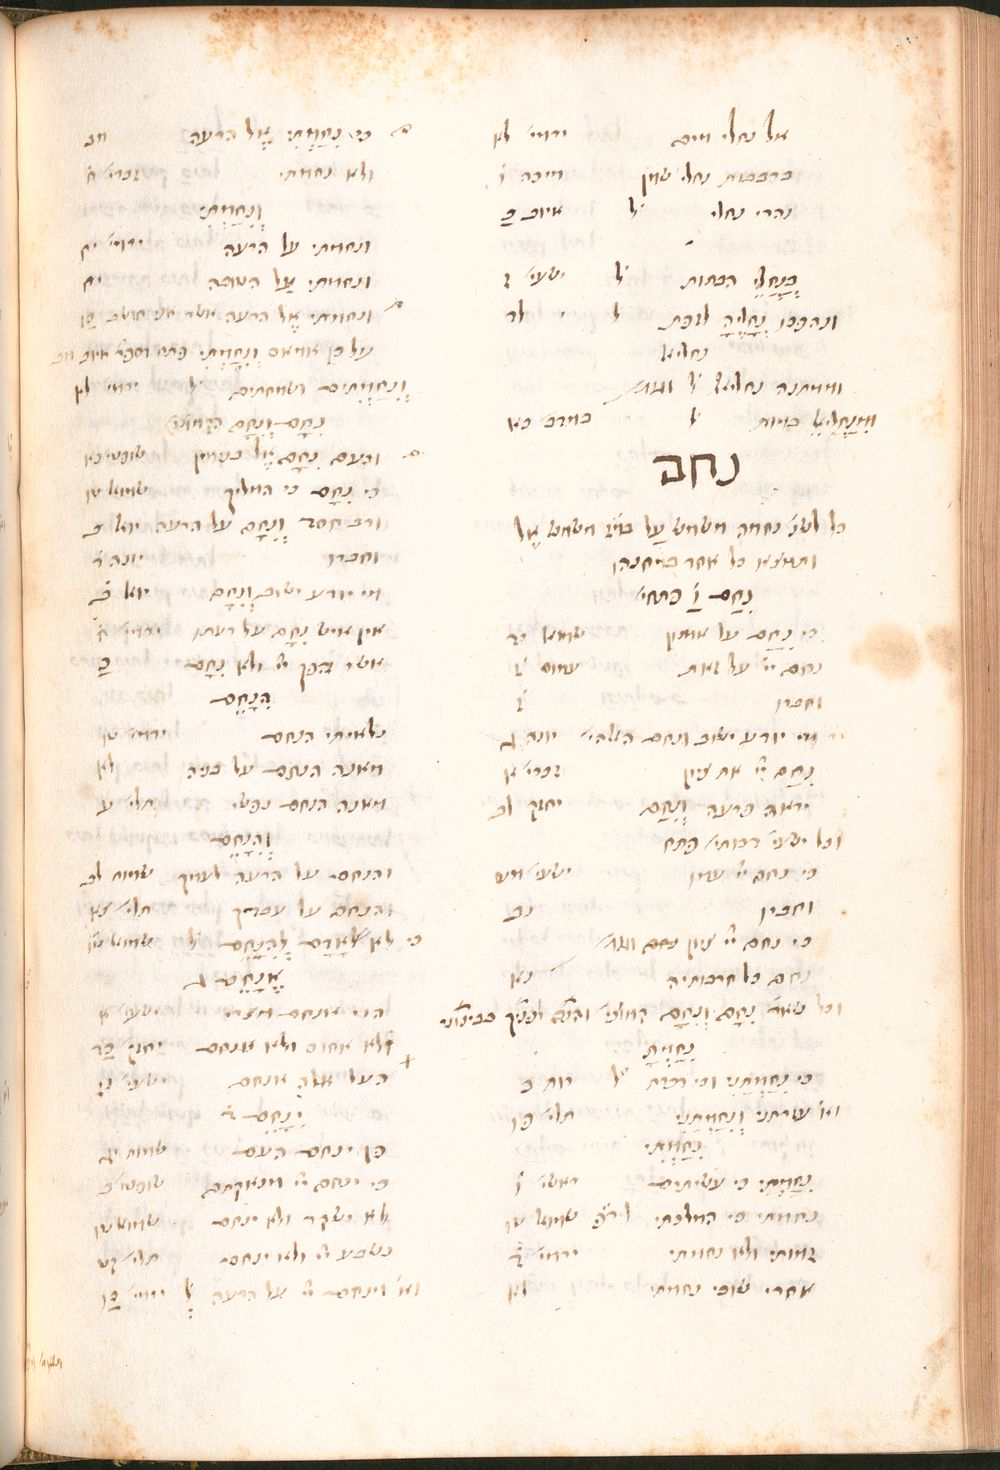 אל נחלי מים ירמי׳ לא
ברבבות נחלי שמן מיכה ו
נהרי נחלי ל איוב כ
בְּנַחֲלֵי הבתות ל ישעי׳ ז
ונהפכו נְחָלֶיהָ לזפת ל י׳ לד
נחליאל
וממתנה נחליאל ל
וּמִנַּחֲלִיאֵל במות ל במדבר כא
נחם
כל לשׁ׳ נחמה משמש על משמש אל
ותמצא כל אחד
נִחַם
כי נִחַם על אמנון שמוא׳ יג
נחם יי׳ על זאת עמוס ז
וחברו ז
מי יודע ישוב ונחם האלהי׳ יונה ג
נִחַם יי׳ את ציון זכרי׳ א
יראה פרעה וְנִחַם יחזק׳ לב
וכל ישעי׳ דכותי׳ פתח
כי נחם יי׳ עמו ישעי׳ מט
וחברו נב
כי נחם יי׳ ציון
נחם כל חרבותיה נא
וכל שאר נִחָם וְנִחָם
נִחַמְתָּ
כי נִחַמְתָּנִי וכי דברת ל רות ב
עזרתני וְנִחַמְתָּנִי תלי׳ פו
נִחַמְתִּי
נִחַמְתִּי כי עשיתים ראשי׳ ו
נחמתי כי המלכתי שמוא׳ טו
זמותי ולא נחמתי ירמי׳ ד
אחרי שובי נחמתי לא
כי נִחַמְתִּי אֶל הרעה מב
ולא נחמתי זכרי׳ ח
וְנִחַמְתִּי
ונחמתי על הרעה ירמי׳ יח
ונחמתי על הטובה יח
ונחמתי אֶל הרעה אשר אני חושב כו
על כן אמאס וְנִחַמְתִּי איוב מב
וְנִחַמְתִּים ושמחתים ל ירמי׳ לא
נִחָם וְנִחָם
והעם נִחָם אל בנימין שופטי׳ כא
כי נִחָם כי המליך שמוא׳ טו
ורב חסד וְנִחָם על הרעה יואל ב
וחברו יונה ד
מי יודע ישוב וְנִחָם יואל ב
אין איש נִחָם על רעתו ירמי׳ ח
אשר הפך יי׳ ולא נִחָם כ
הִנָּחֵם
נלאיתי הנחם ירמי׳ טו
מאנה הנחם על בניה לא
מאנה הנחם נפשי תלי׳ עז
וְהִנָּחֵם
והנחם על הרעה לעמך שמות לב
והנחם על עבדיך תלי׳ צ
כי לא אָדָם לְהִנָּחֵם ל שמוא׳ טו
אֶנָּחֵם ג
הוי אנחם מצרי ישעי׳ א
ולא אחוס ולא אנחם יחזק׳ כד
העל אלה אנחם ישעי׳ נז
יִנָּחֵם ד
פן ינחם העם שמות יג
כי ינחם יי׳ מנאקתם שופטי׳ ב
לא ישקר ולא ינחם שמוא׳ טו
נשבע יי׳ ולא ינחם תלי׳ קי
וינחם יי׳ על הרעה ל ירמי׳ כו